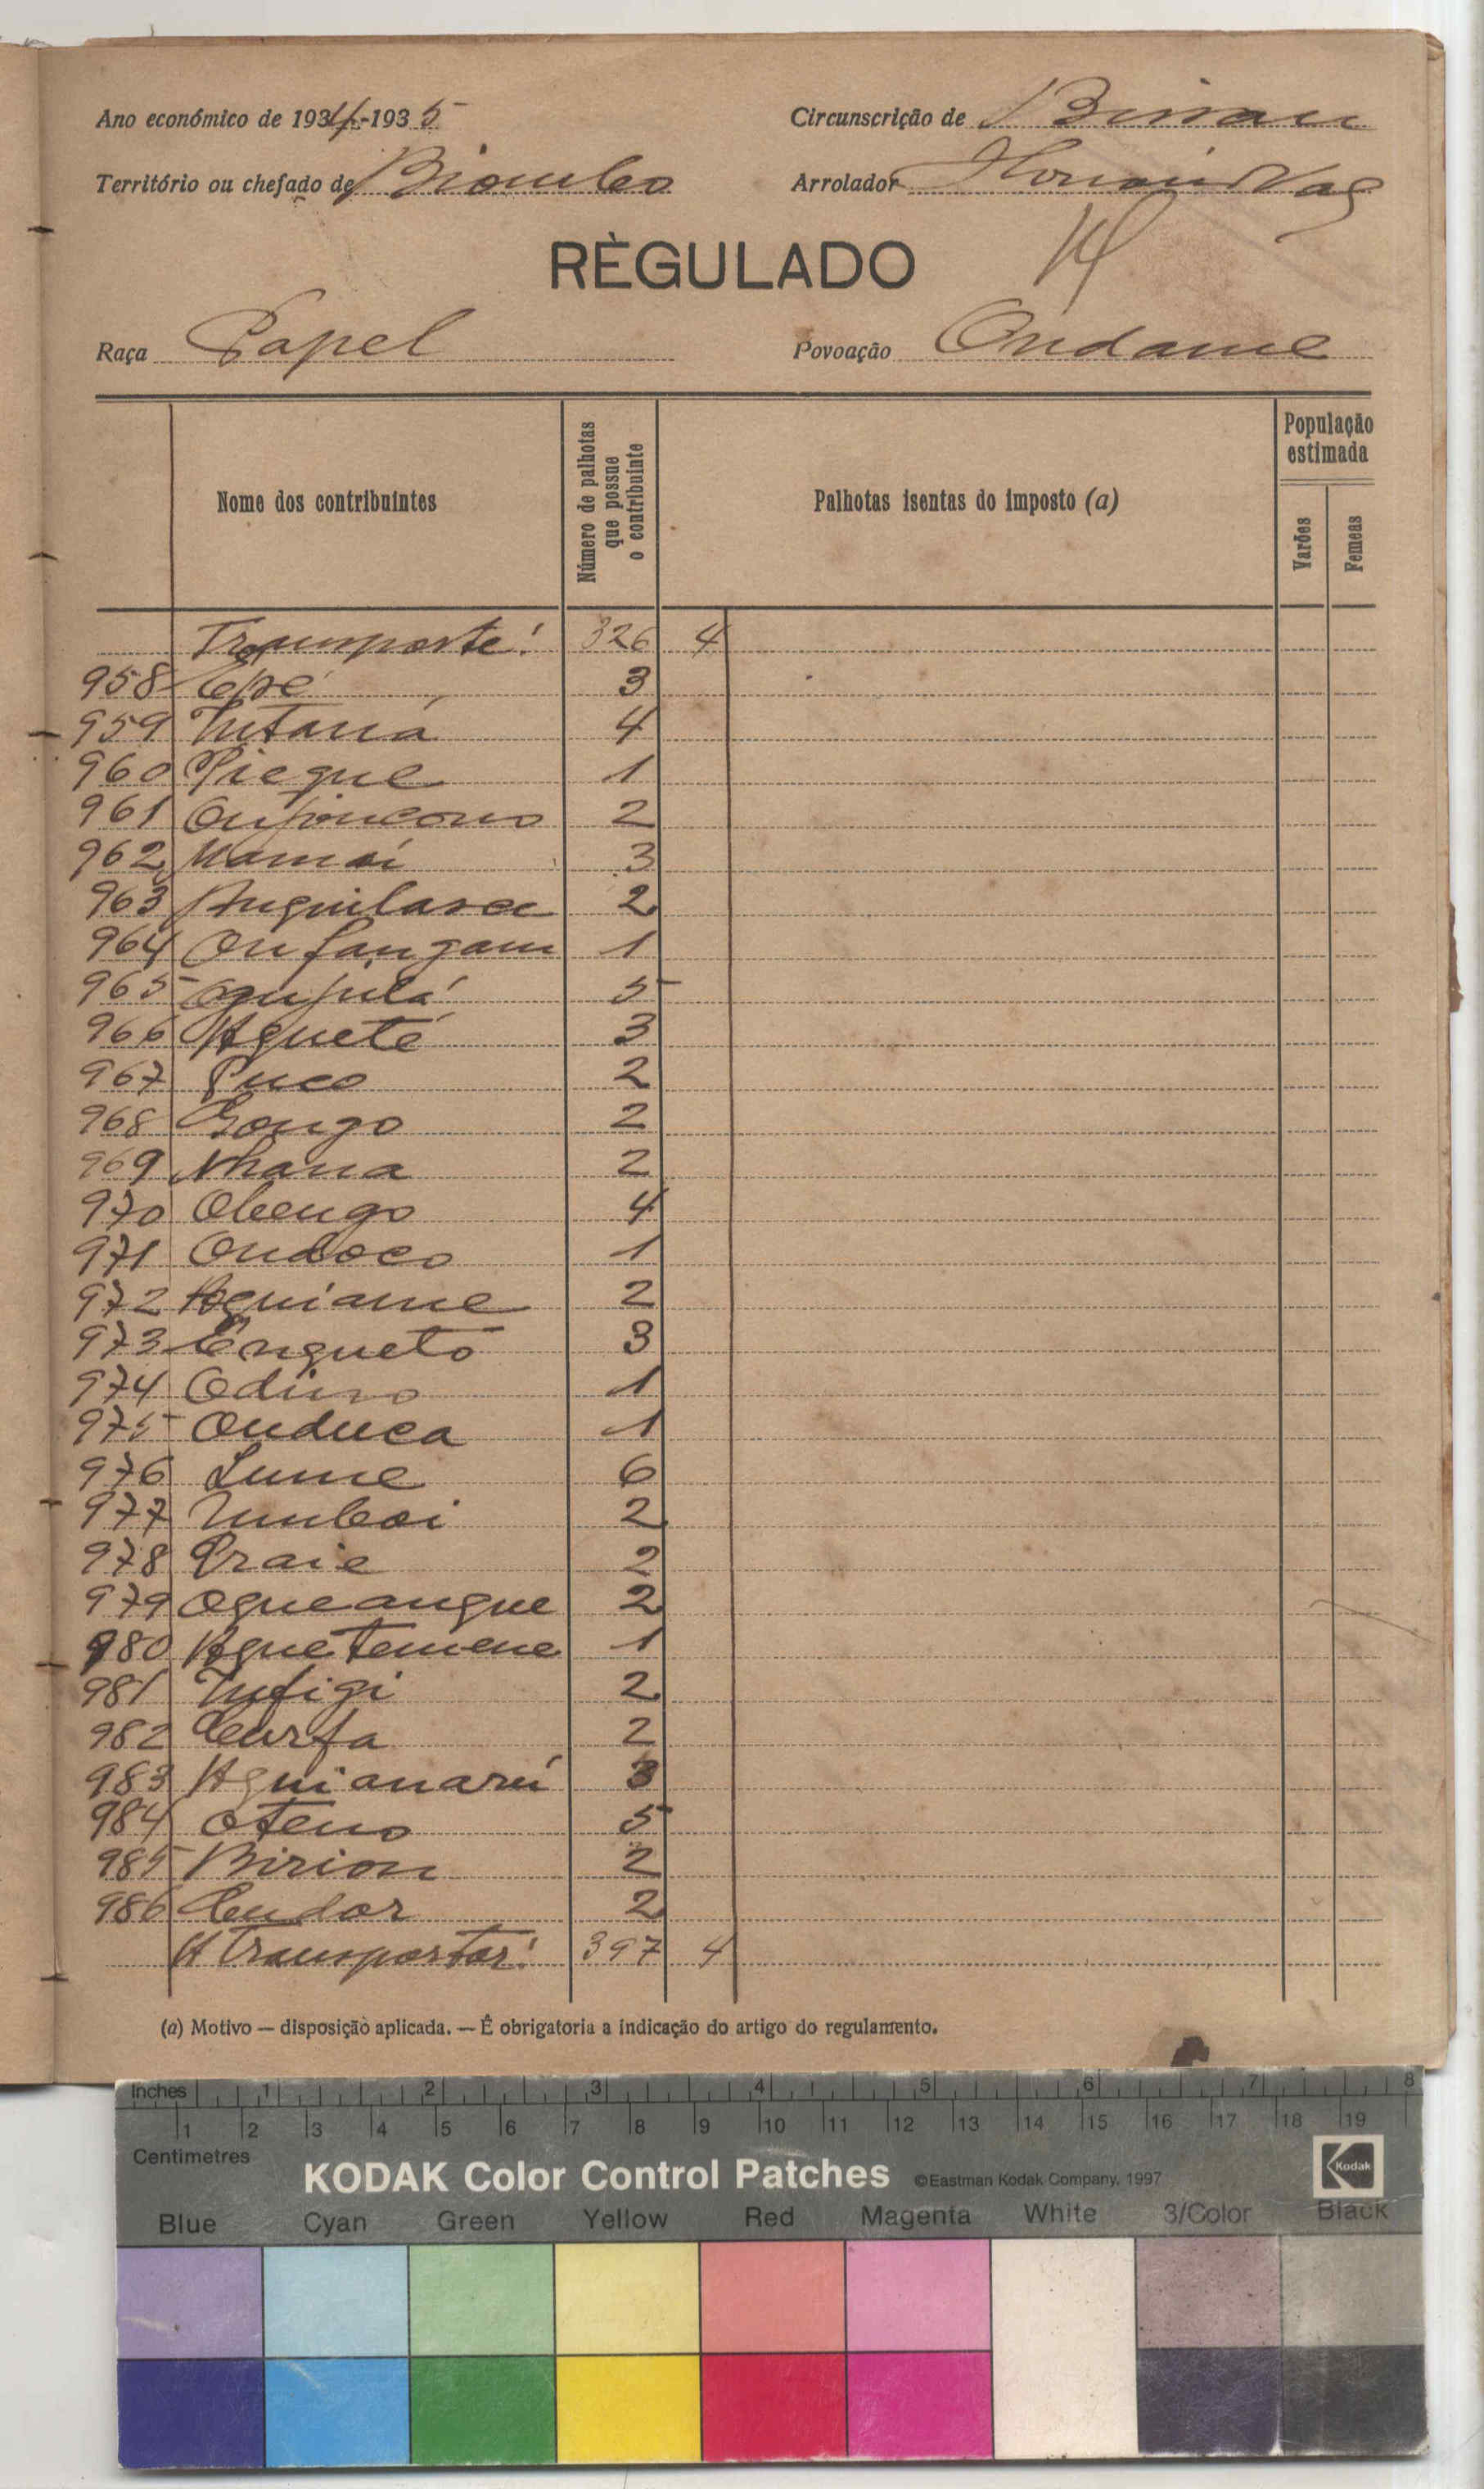 Ano económico de 1934-1935 Circunscrição de Bissau
Território ou chefado de Biombo Arrolador Vaz
RÈGULADO
Raça Papel Povoação Ondame
Nome dos contribuintes
Número de palhotas que possue o contribuinte
Palhotas isentas do imposto (a)
População estimada
Varões
Femeas
Transporte: 326 4
958 3
959 4
960 Pieque 1
961 2
962 3
963 2
964 Onfangam 1
965 5
966 Agueté 3
967 Puco 2
968 Gongo 2
969 Nhana 2
970 Obengo 4
971 Ondoco 1
972 Aguiame 2
973 Enqueto 3
974 1
975 Onduca 1
976 Lume 6
977 Umboi 2
978 Praie 2
979 Ogueangue 2
980 Aguetemene 1
981 2
982 2
983 3
984 Oteno 5
985 Birion 2
986 2
A transportar: 397 4
(a) Motivo — disposição aplicada. — É obrigatoria a indicação do artigo do regulamento.
Inches 1 2 3 4 5 6 7 8
1 2 3 4 5 6 7 8 9 10 11 12 13 14 15 16 17 18 19
Centimetres
KODAK Color Control Patches ©Eastman Kodak Company, 1997 Kodak
Blue Cyan Green Yellow Red Magenta White 3/Color Black